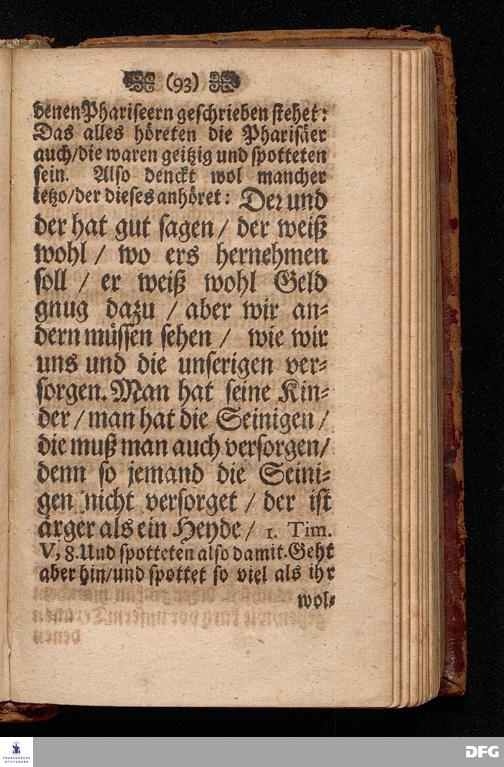 (93)
denen Phariseern geschrieben stehet:
Das alles höreten die Pharisäer
auch/die waren geitzig und spotteten
sein. Also denckt wol mancher
ietzo/der dieses anhöret: Der und
der hat gut sagen / der weiß
wohl / wo ers hernehmen
soll / er weiß wohl Geld
gnug dazu / aber wir an-
dern müssen sehen / wie wir
uns und die unserigen ver-
sorgen. Man hat seine Kin-
der / man hat die Seinigen /
die muß man auch versorgen/
denn so jemand die Seini-
gen nicht versorget / der ist
ärger als ein Heyde / 1. Tim.
V, 8. Und spotteten also damit. Geht
aber hin/und spottet so viel als ihr
wol-
FRANCKESCHE
STIFTUNGEN
DFG